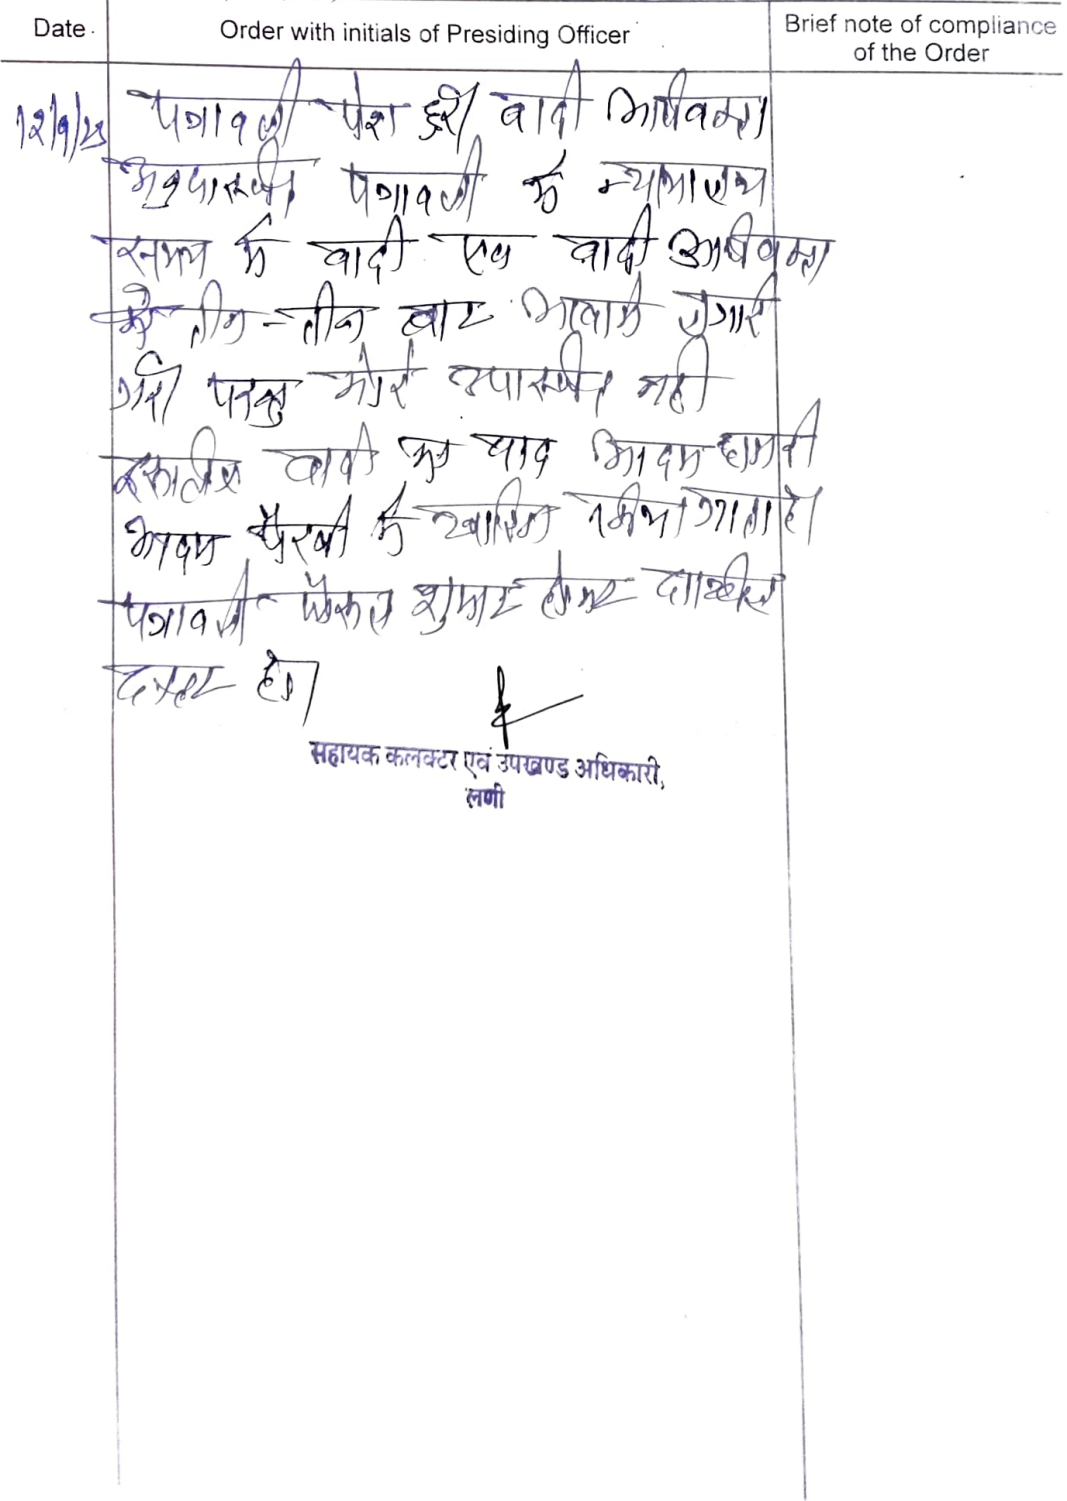 Date
Order with initials of Presiding Officer
Brief note of compliance of the Order
पत्रावली पेश हुई। वादी अभिवक्ता
अनुपस्थित। पत्रावली में न्यायालय
समय में वादी एवं वादी अभिवक्ता
को तीन-तीन बार आवाजे लगाई
गई। परन्तु कोई उपस्थित नही
इसलिए वादी का वाद अदम हाजरी
अदम पैरवी में खारिज किया जाता है।
पत्रावली फैसल शुमार होकर दाखिल
दफ्तर हो।
सहायक कलक्टर एवं उपखण्ड अधिकारी,
लूणी